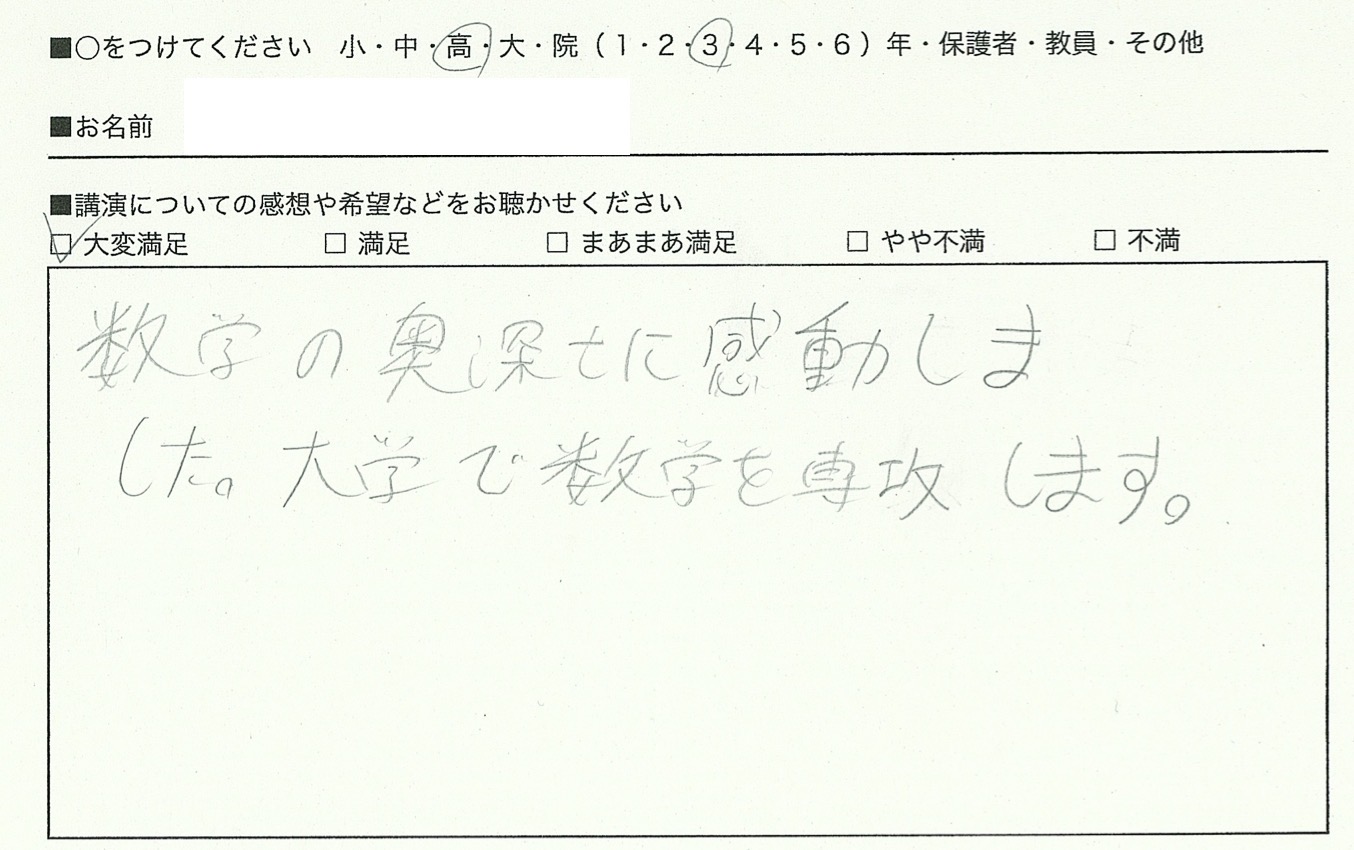 ■○をつけてください 小・中・高・大・院（1・2・3・4・5・6）年・保護者・教員・その他
■お名前
■講演についての感想や希望などをお聴かせください
□ 大変満足 □ 満足 □ まあまあ満足 □ やや不満 □ 不満
数学の奥深さに感動しま
した。大学で数学を専攻します。